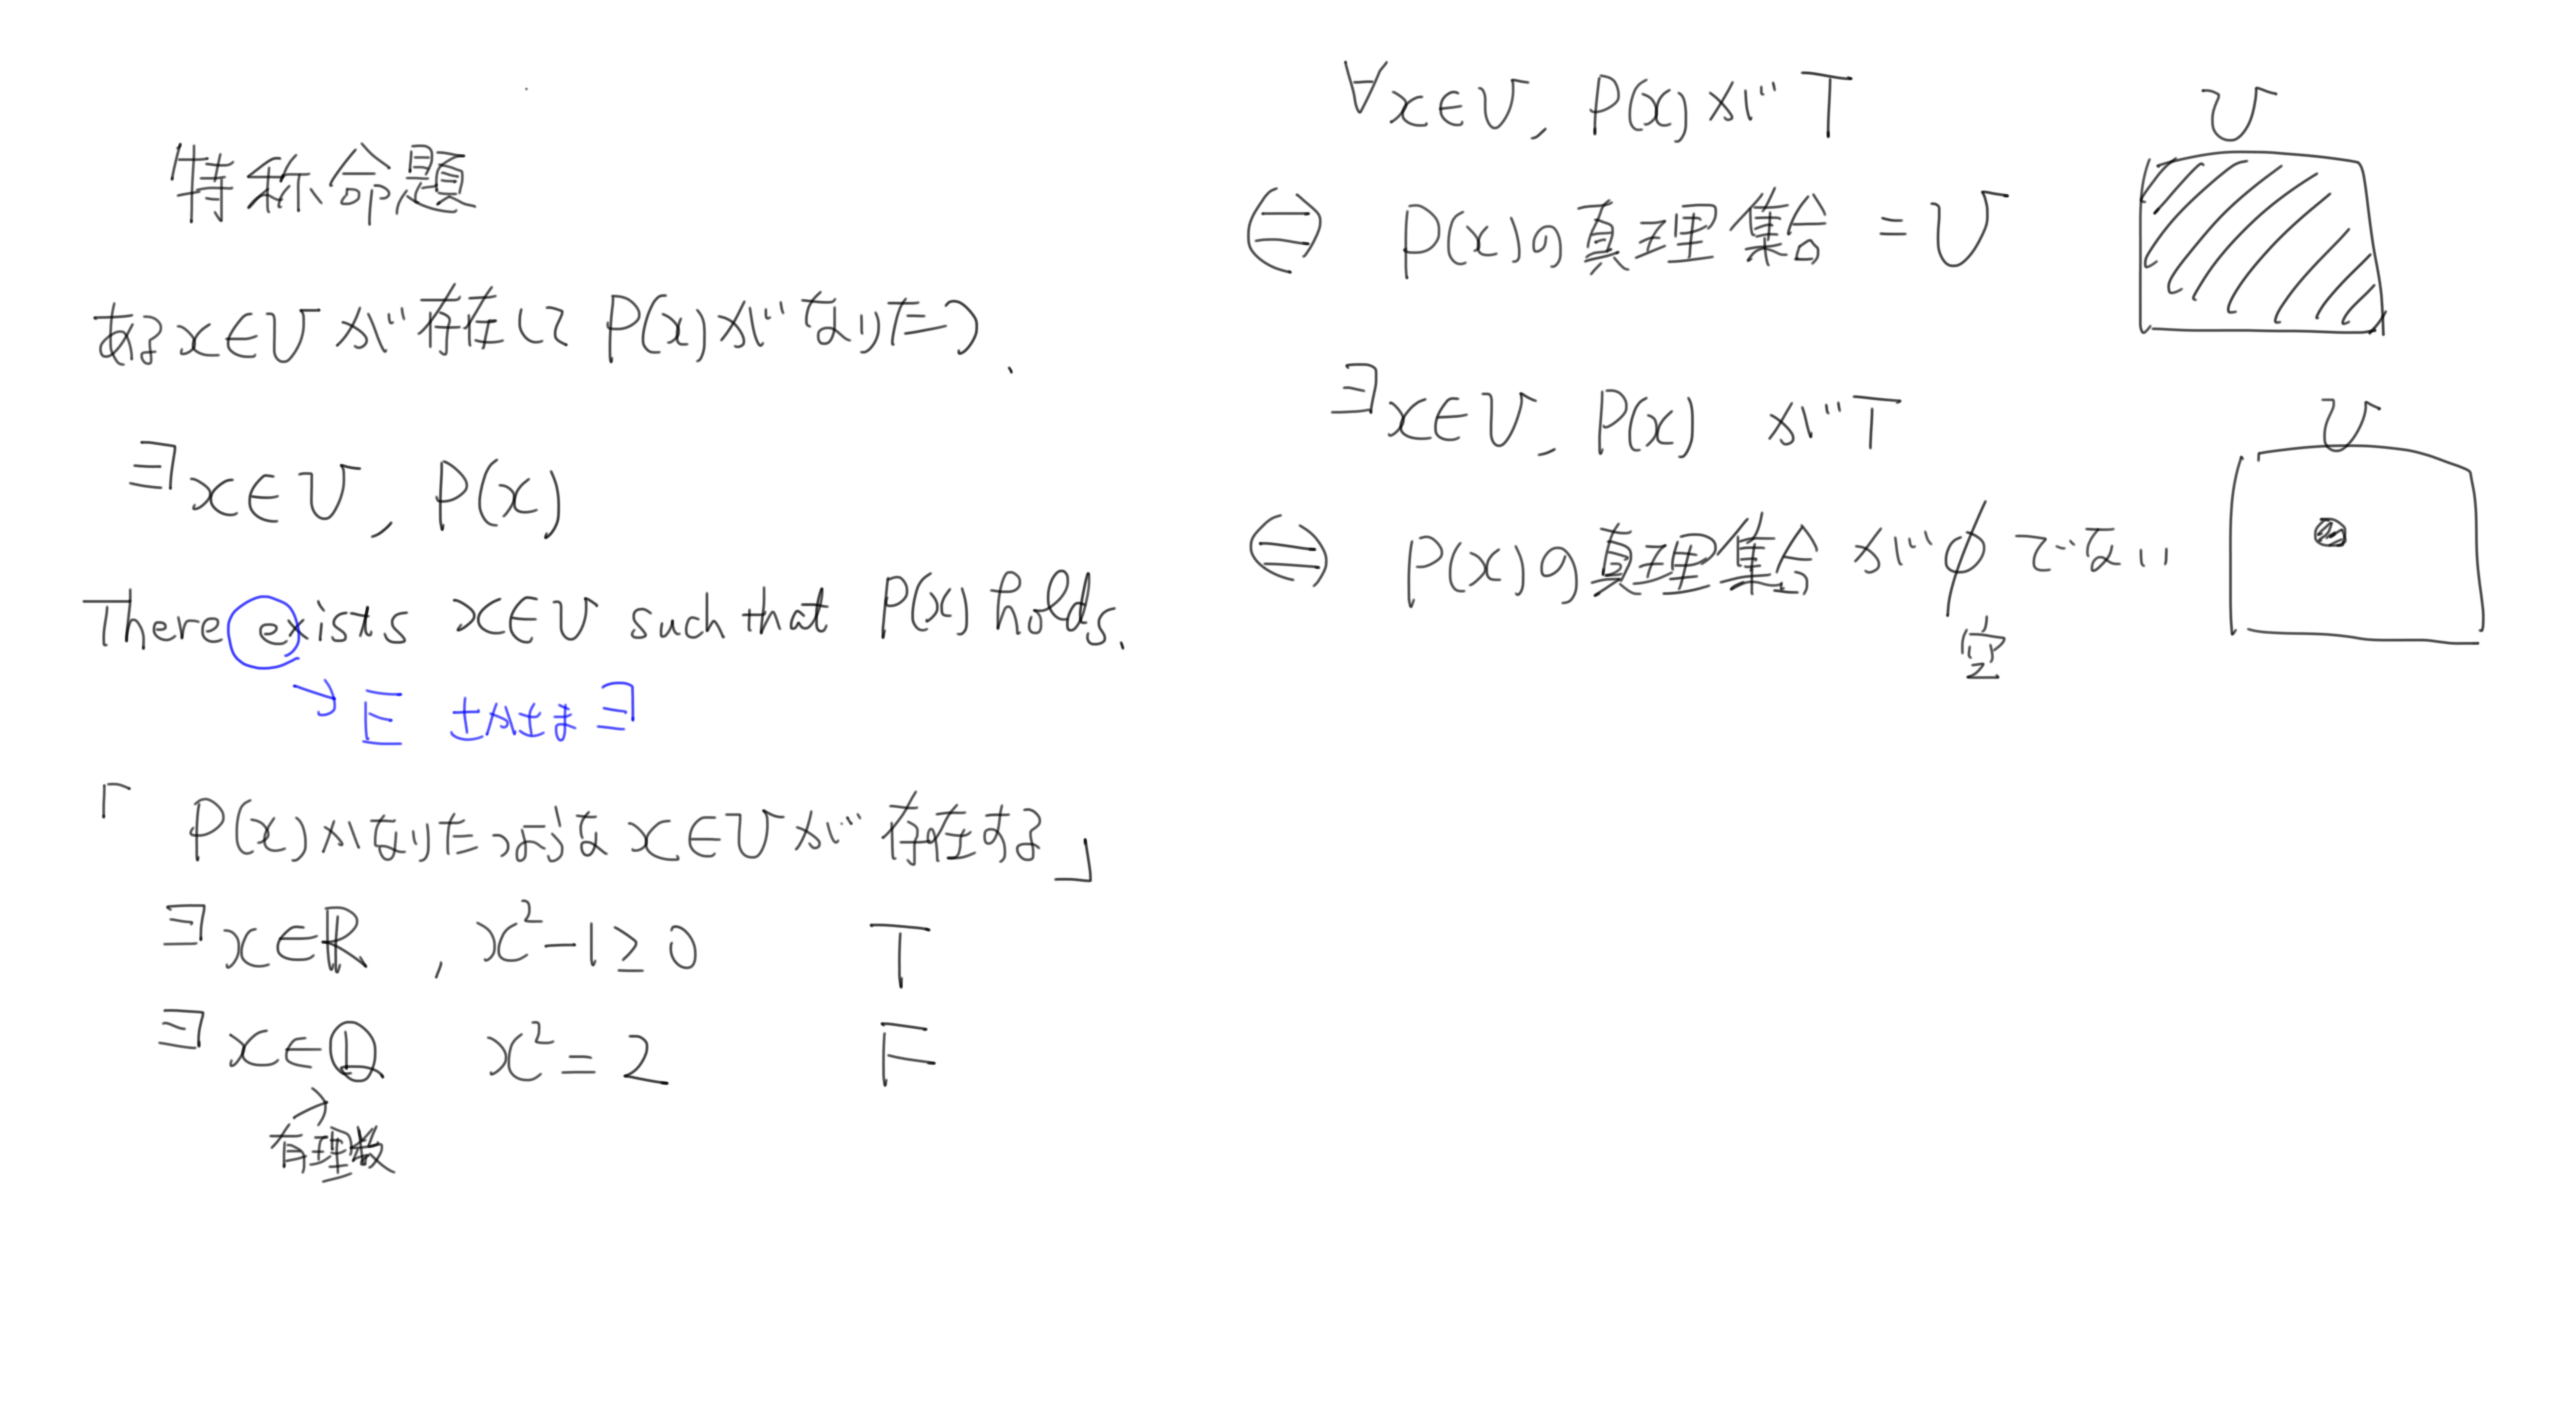 特称命題
ある x∈U が存在して P(x) がなりたつ.
∃x∈U, P(x)
There exists x∈U such that P(x) holds.
→ E さかさま ∃
「P(x)がなりたつような x∈U が存在する」
∃x∈ℝ , x²-1≥0 T
∃x∈ℚ x²=2 F
有理数
∀x∈U, P(x) が T
⇔ P(x)の真理集合 = U
U
∃x∈U, P(x) が T
⇔ P(x)の真理集合が φ でない
空
U